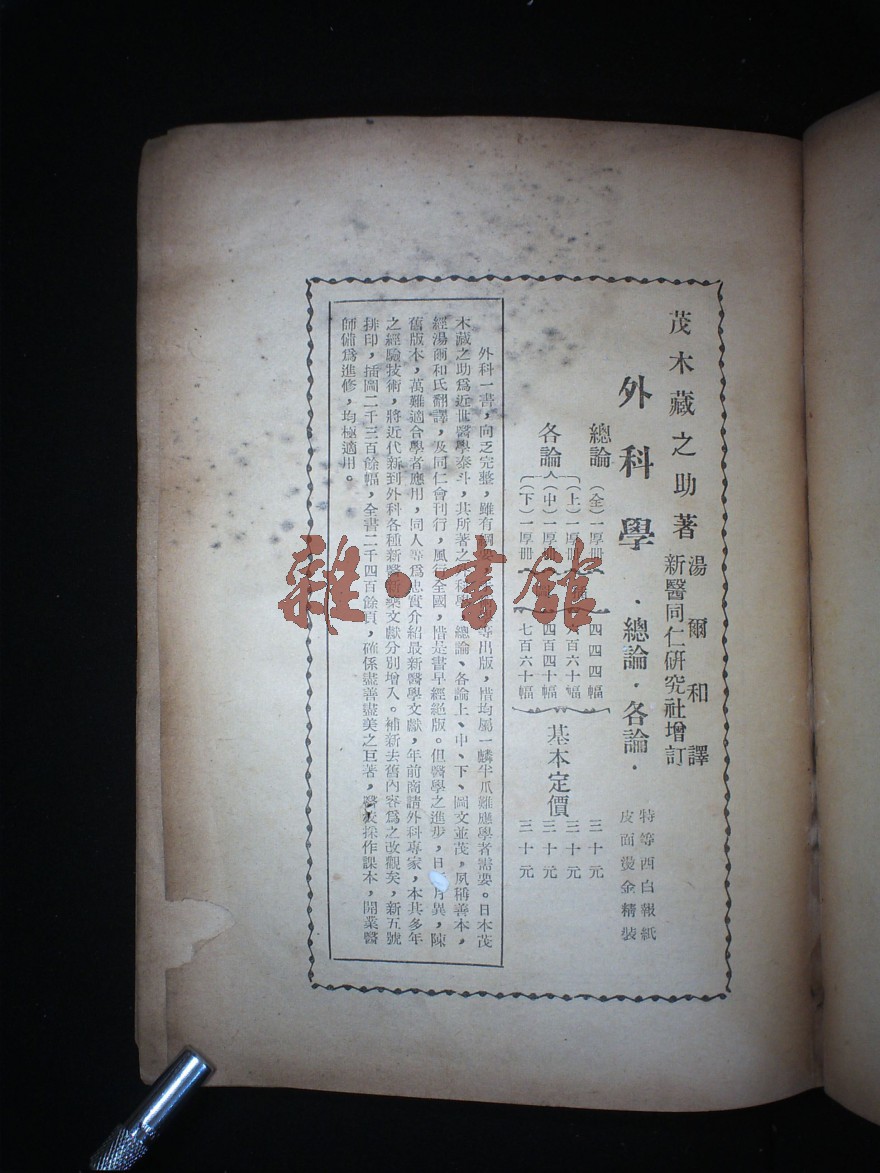 茂木藏之助著
湯爾和譯
新醫同仁研究社增訂
外科學·總論·各論·
特等西白報紙
皮面燙金精裝
總論（全）一厚冊 四四四幅 三十元
各論（上）一厚冊 六百六十幅 三十元
（中）一厚冊 四百四十幅 三十元
（下）一厚冊 七百六十幅 三十元
基本定價
外科一書，向乏完整，雖有 等出版，惜均屬一麟半爪難應學者需要。日本茂
木藏之助爲近世醫學泰斗，其所著之 科學 總論、各論上、中、下、圖文並茂，夙稱善本，
經湯爾和氏翻譯，及同仁會刊行，風行全國，惜是書早經絕版。但醫學之進步，日 月異，陳
舊版本，萬難適合學者應用，同人等爲忠實介紹最新醫學文獻，年前商請外科專家，本其多年
之經驗技術，將近代新到外科各種新醫新藥文獻分別增入。補新去舊內容爲之改觀矣，新五號
排印，插圖二千三百餘幅，全書二千四百餘頁，確係盡善盡美之巨著，醫校採作課本，開業醫
師備爲進修，均極適用。
雜·書館